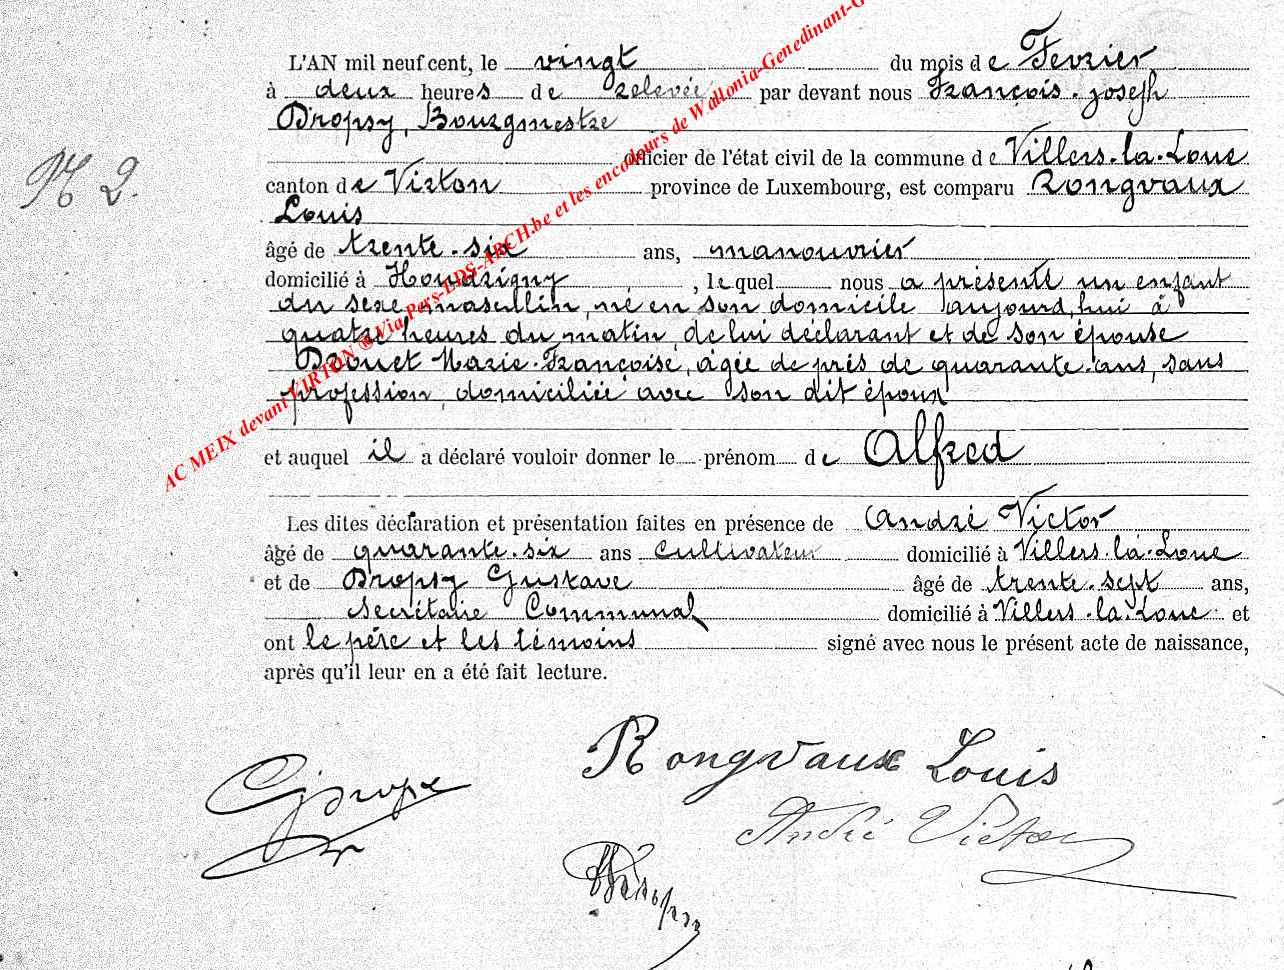 L'AN mil neuf cent, le vingt du mois de Fevrier
à deux heures de relevée par devant nous François-Joseph
Dropsy, Bourgmestre
N 2.
officier de l'état civil de la commune de Villers-la-Loue
canton de Virton province de Luxembourg, est comparu Rongvaux
Louis
âgé de trente-six ans, manouvrier
domicilié à Houdrigny, lequel nous a présenté un enfant
du sexe masculin, né en son domicile aujourd'hui à
quatre heures du matin, de lui déclarant et de son épouse
Drouet Marie-Françoise, âgée de près de quarante-ans, sans
profession, domiciliée avec son dit époux
et auquel il a déclaré vouloir donner le prénom de Alfred
Les dites déclaration et présentation faites en présence de André Victor
âgé de quarante-six ans cultivateur domicilié à Villers-la-Loue
et de Dropsy Gustave âgé de trente-sept ans,
secrétaire Communal domicilié à Villers-la-Loue et
ont le père et les témoins signé avec nous le présent acte de naissance,
après qu'il leur en a été fait lecture.
Rongvaux Louis
André Victor
AC MEIX devant VIRTON ® Via Pers-EDS-ARCH.be et les encodeurs de Wallonia-Genedinant-G